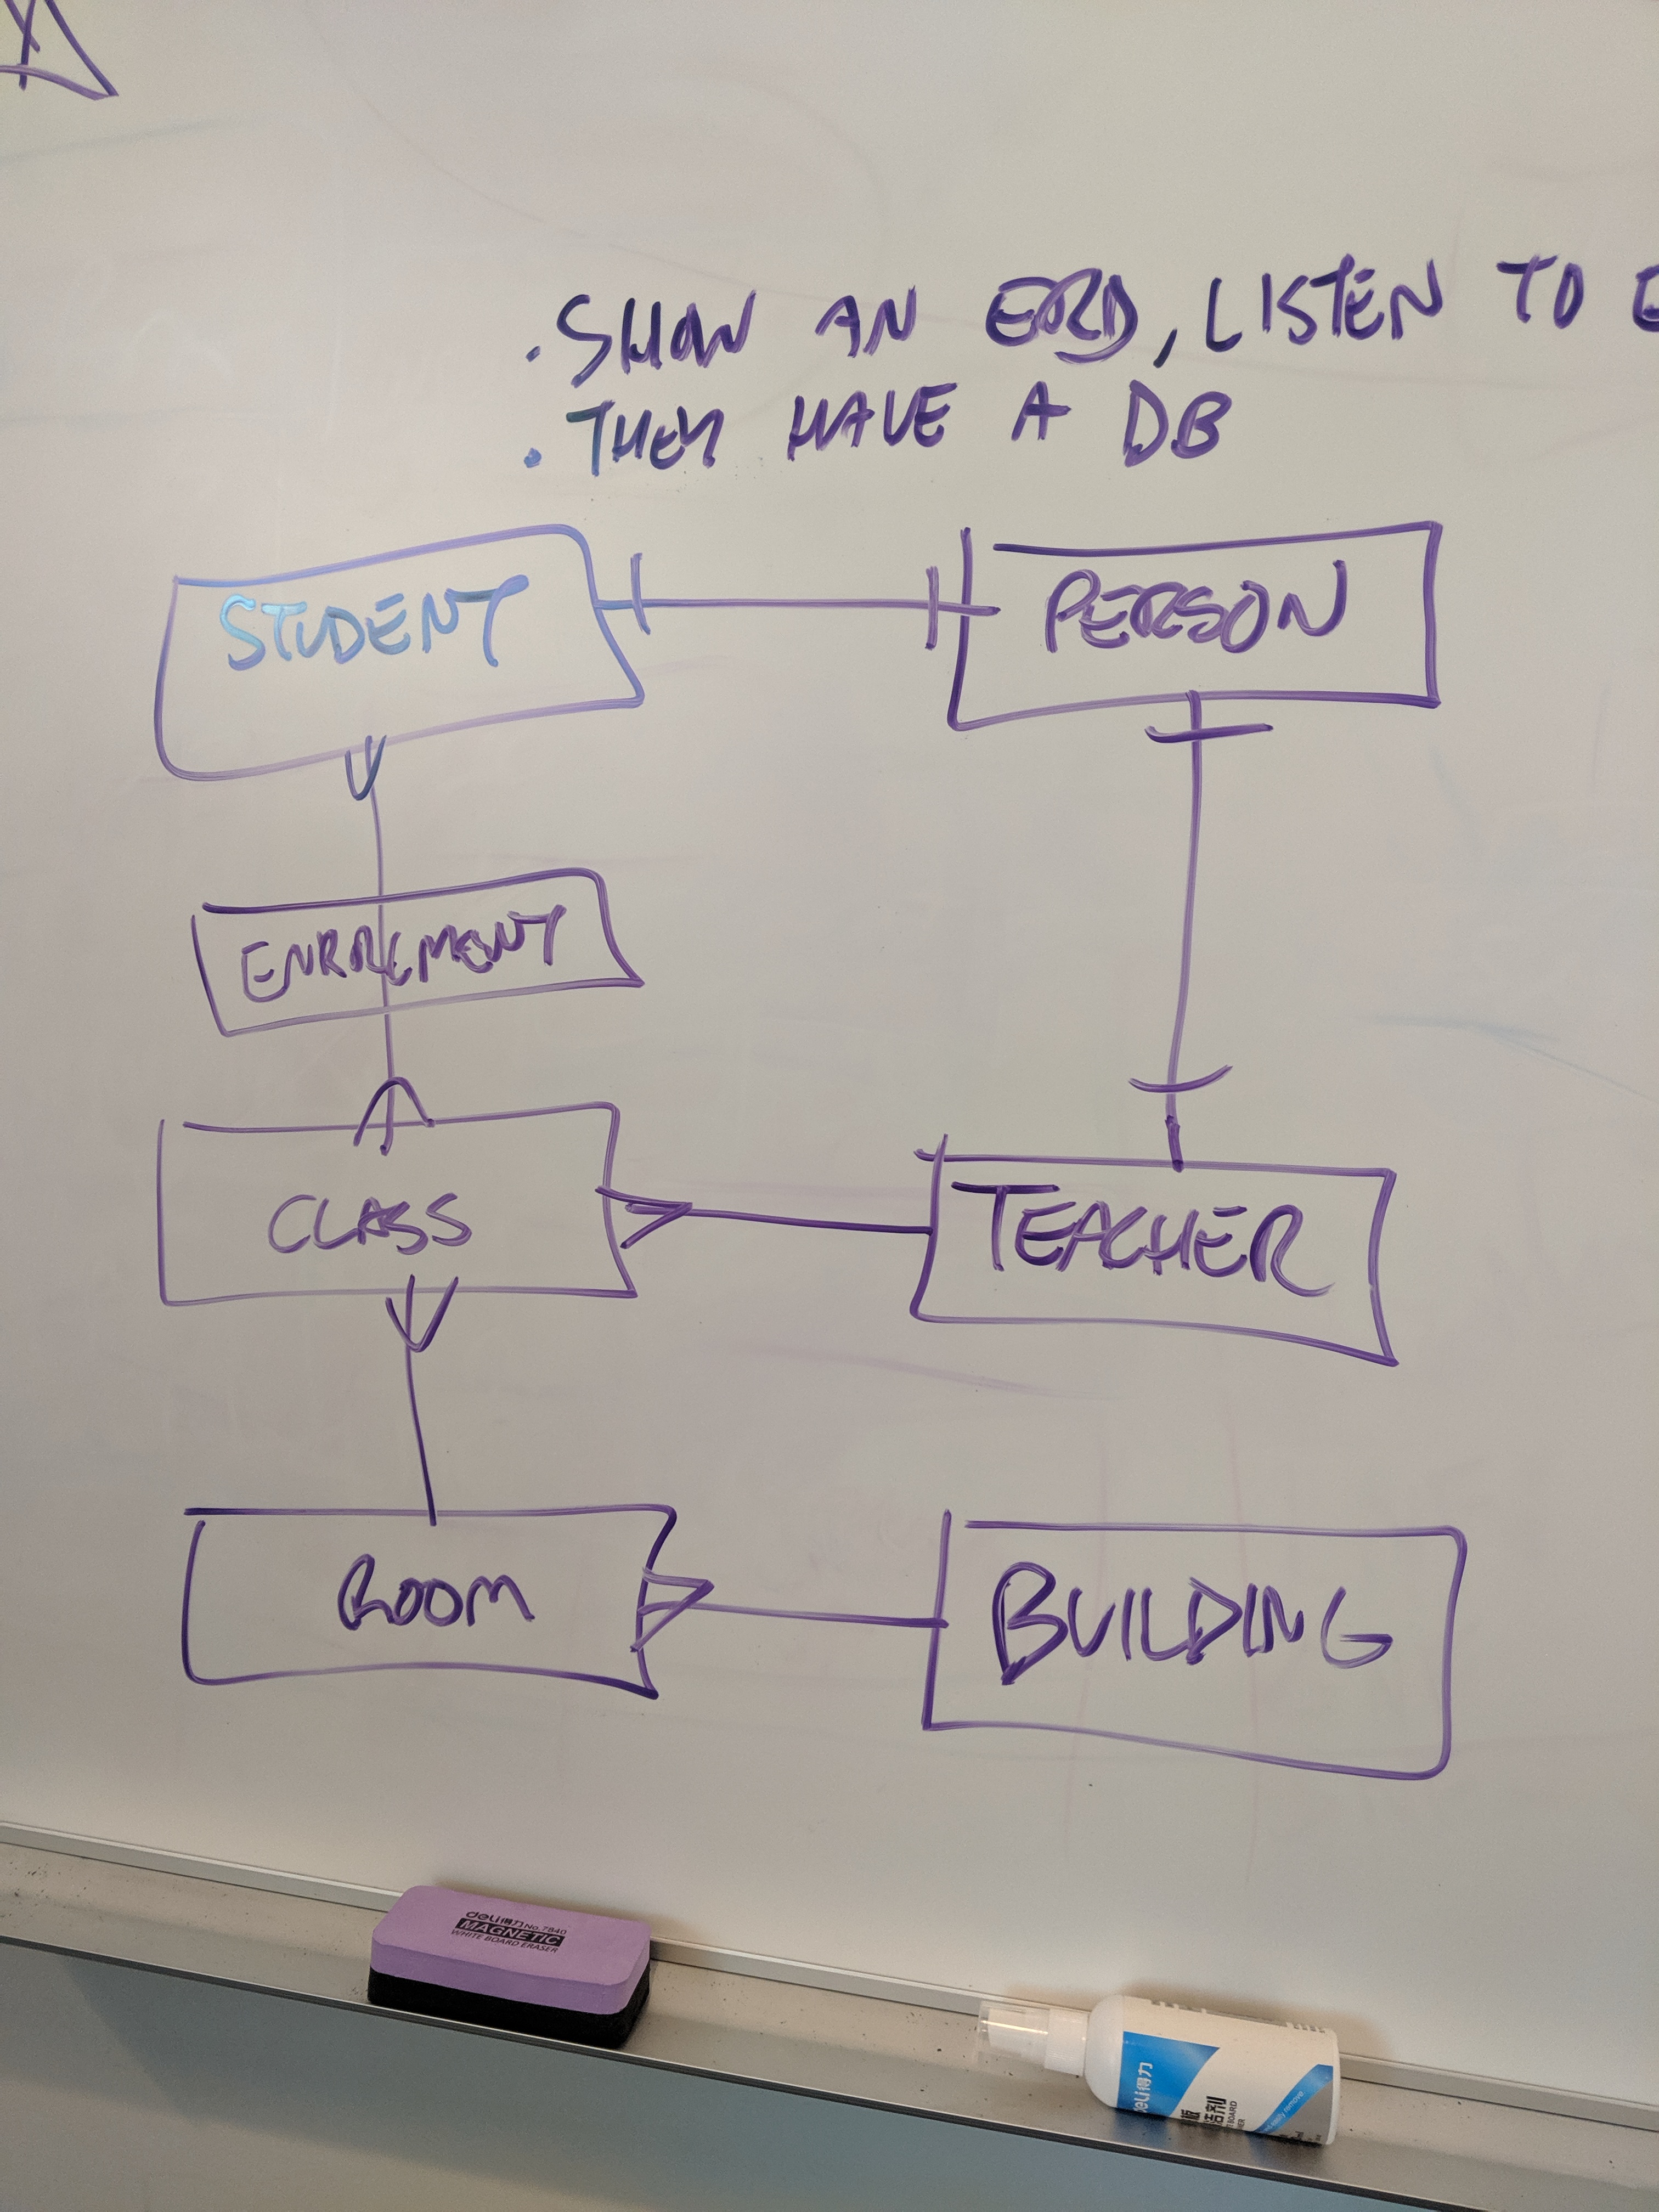 . SHOW AN ERD, LISTEN TO
. THEY HAVE A DB
STUDENT
PERSON
ENROLMENT
CLASS
TEACHER
ROOM
BUILDING
deli得力 No.7840
MAGNETIC
WHITE BOARD ERASER
deli得力